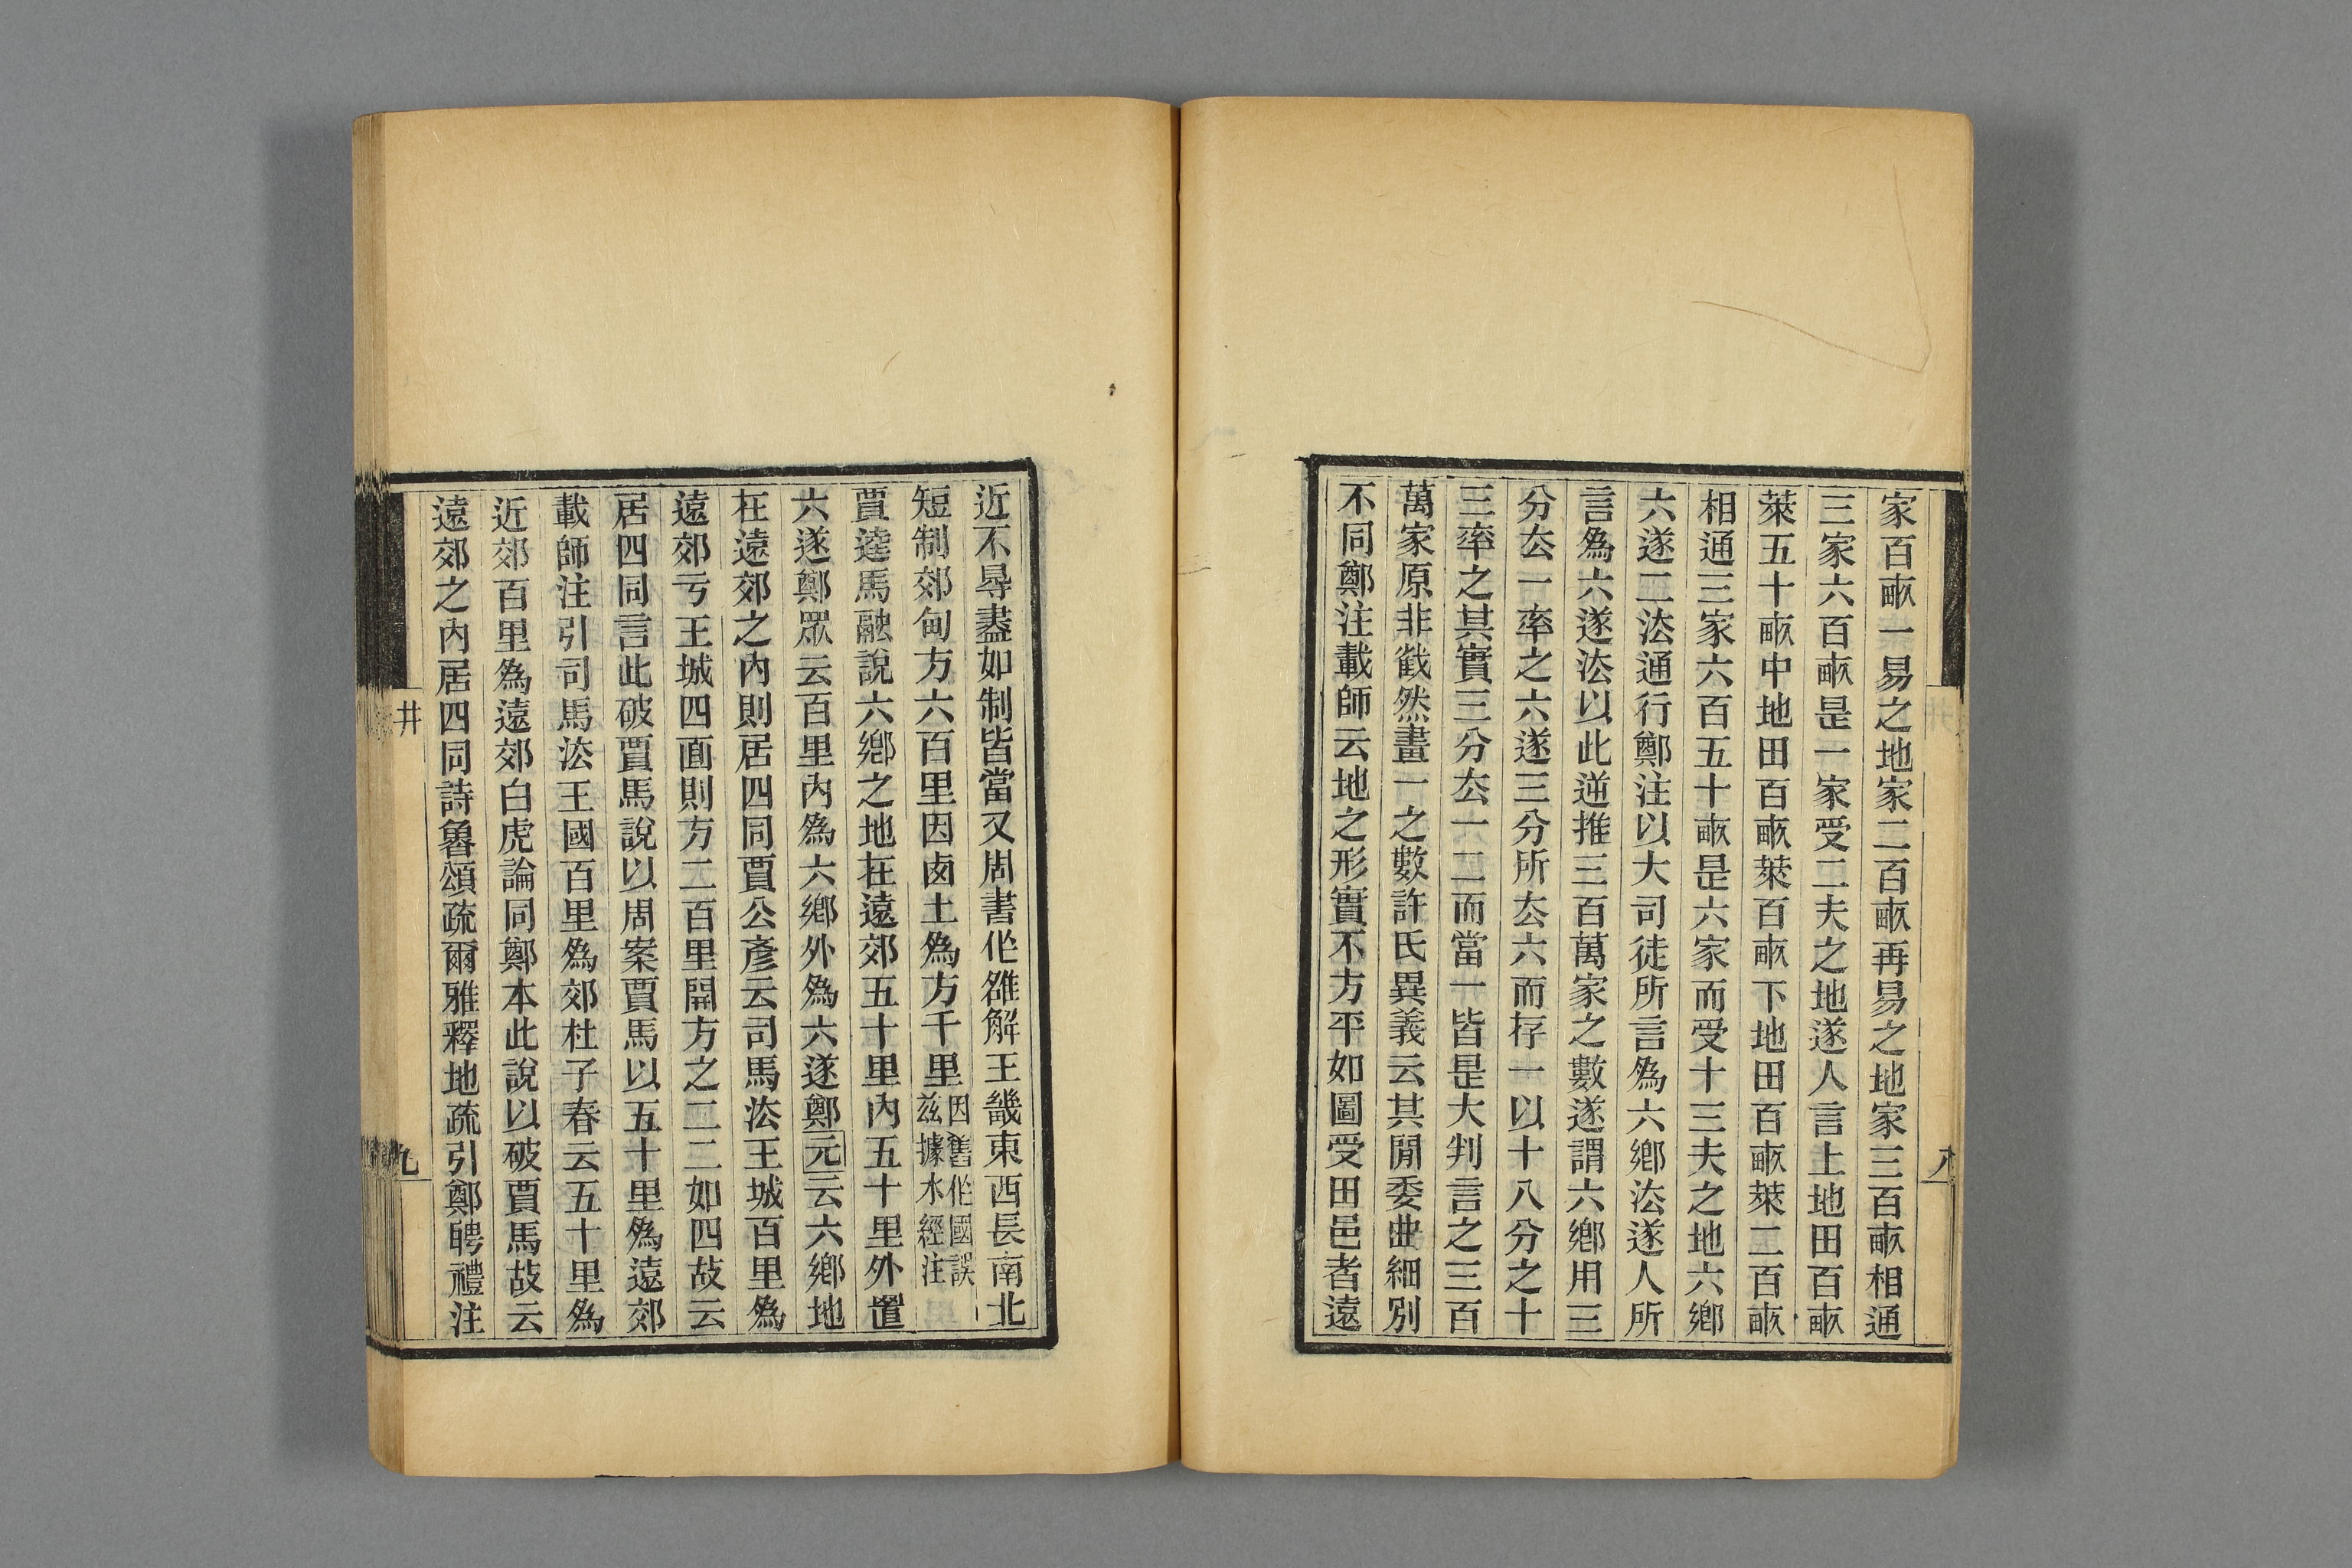 家百畝一易之地家二百畝再易之地家三百畝相通
三家六百畝是一家受二夫之地遂人言上地田百畝
萊五十畝中地田百畝萊百畝下地田百畝萊二百畝
相通三家六百五十畝是六家而受十三夫之地六鄉
六遂二法通行鄭注以大司徒所言爲六鄉法遂人所
言爲六遂法以此逆推三百萬家之數遂謂六鄉用三
分去一率之六遂三分所去六而存一以十八分之十
三率之其實三分去一二而當一皆是大判言之三百
萬家原非截然畫一之數許氏異義云其閒委曲細別
不同鄭注載師云地之形實不方平如圖受田邑者遠
八
近不㝵盡如制皆當又周書作雒解王畿東西長南北
短制郊甸方六百里因卤土爲方千里因舊作國誤茲據水經注
賈逵馬融說六鄉之地在遠郊五十里內五十里外置
六遂鄭眾云百里內爲六鄉外爲六遂鄭元云六鄉地
在遠郊之內則居四同賈公彥云司馬法王城百里爲
遠郊亏王城四面則方二百里開方之二二如四故云
居四同言此破賈馬說以周案賈馬以五十里爲遠郊
載師注引司馬法王國百里爲郊杜子春云五十里爲
近郊百里爲遠郊白虎論同鄭本此說以破賈馬故云
遠郊之內居四同詩魯頌疏爾雅釋地疏引鄭聘禮注
井
九